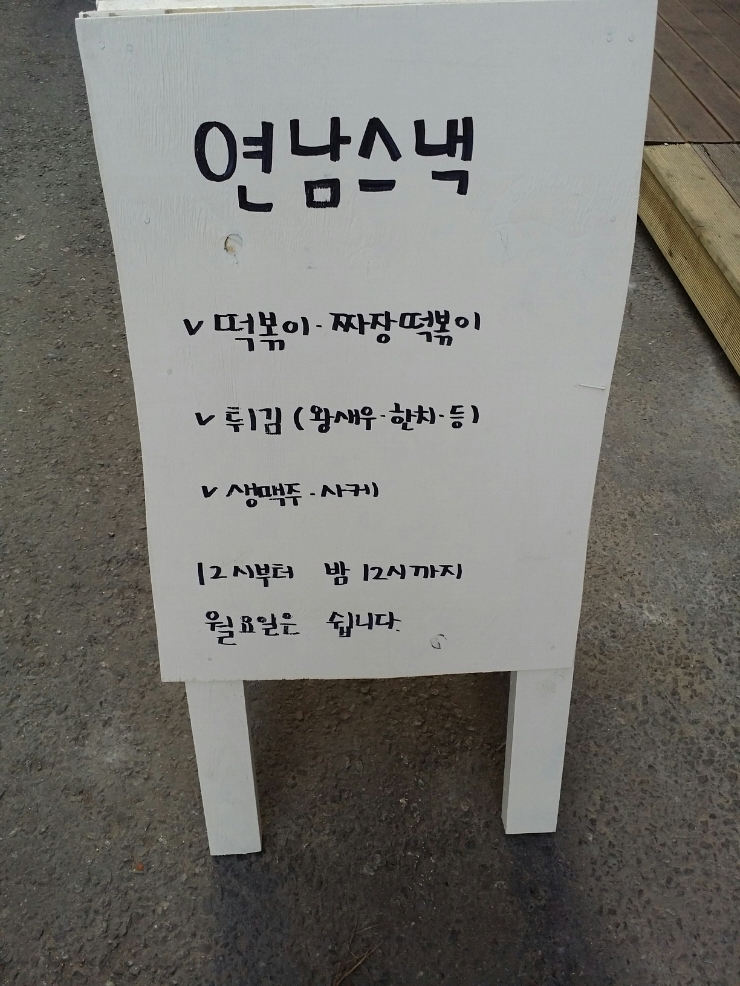 연남스낵
v 떡볶이 - 짜장떡볶이
v 튀김 (왕새우 - 한치 - 등)
v 생맥주 - 사케
12시부터 밤 12시까지
월요일은 쉽니다.